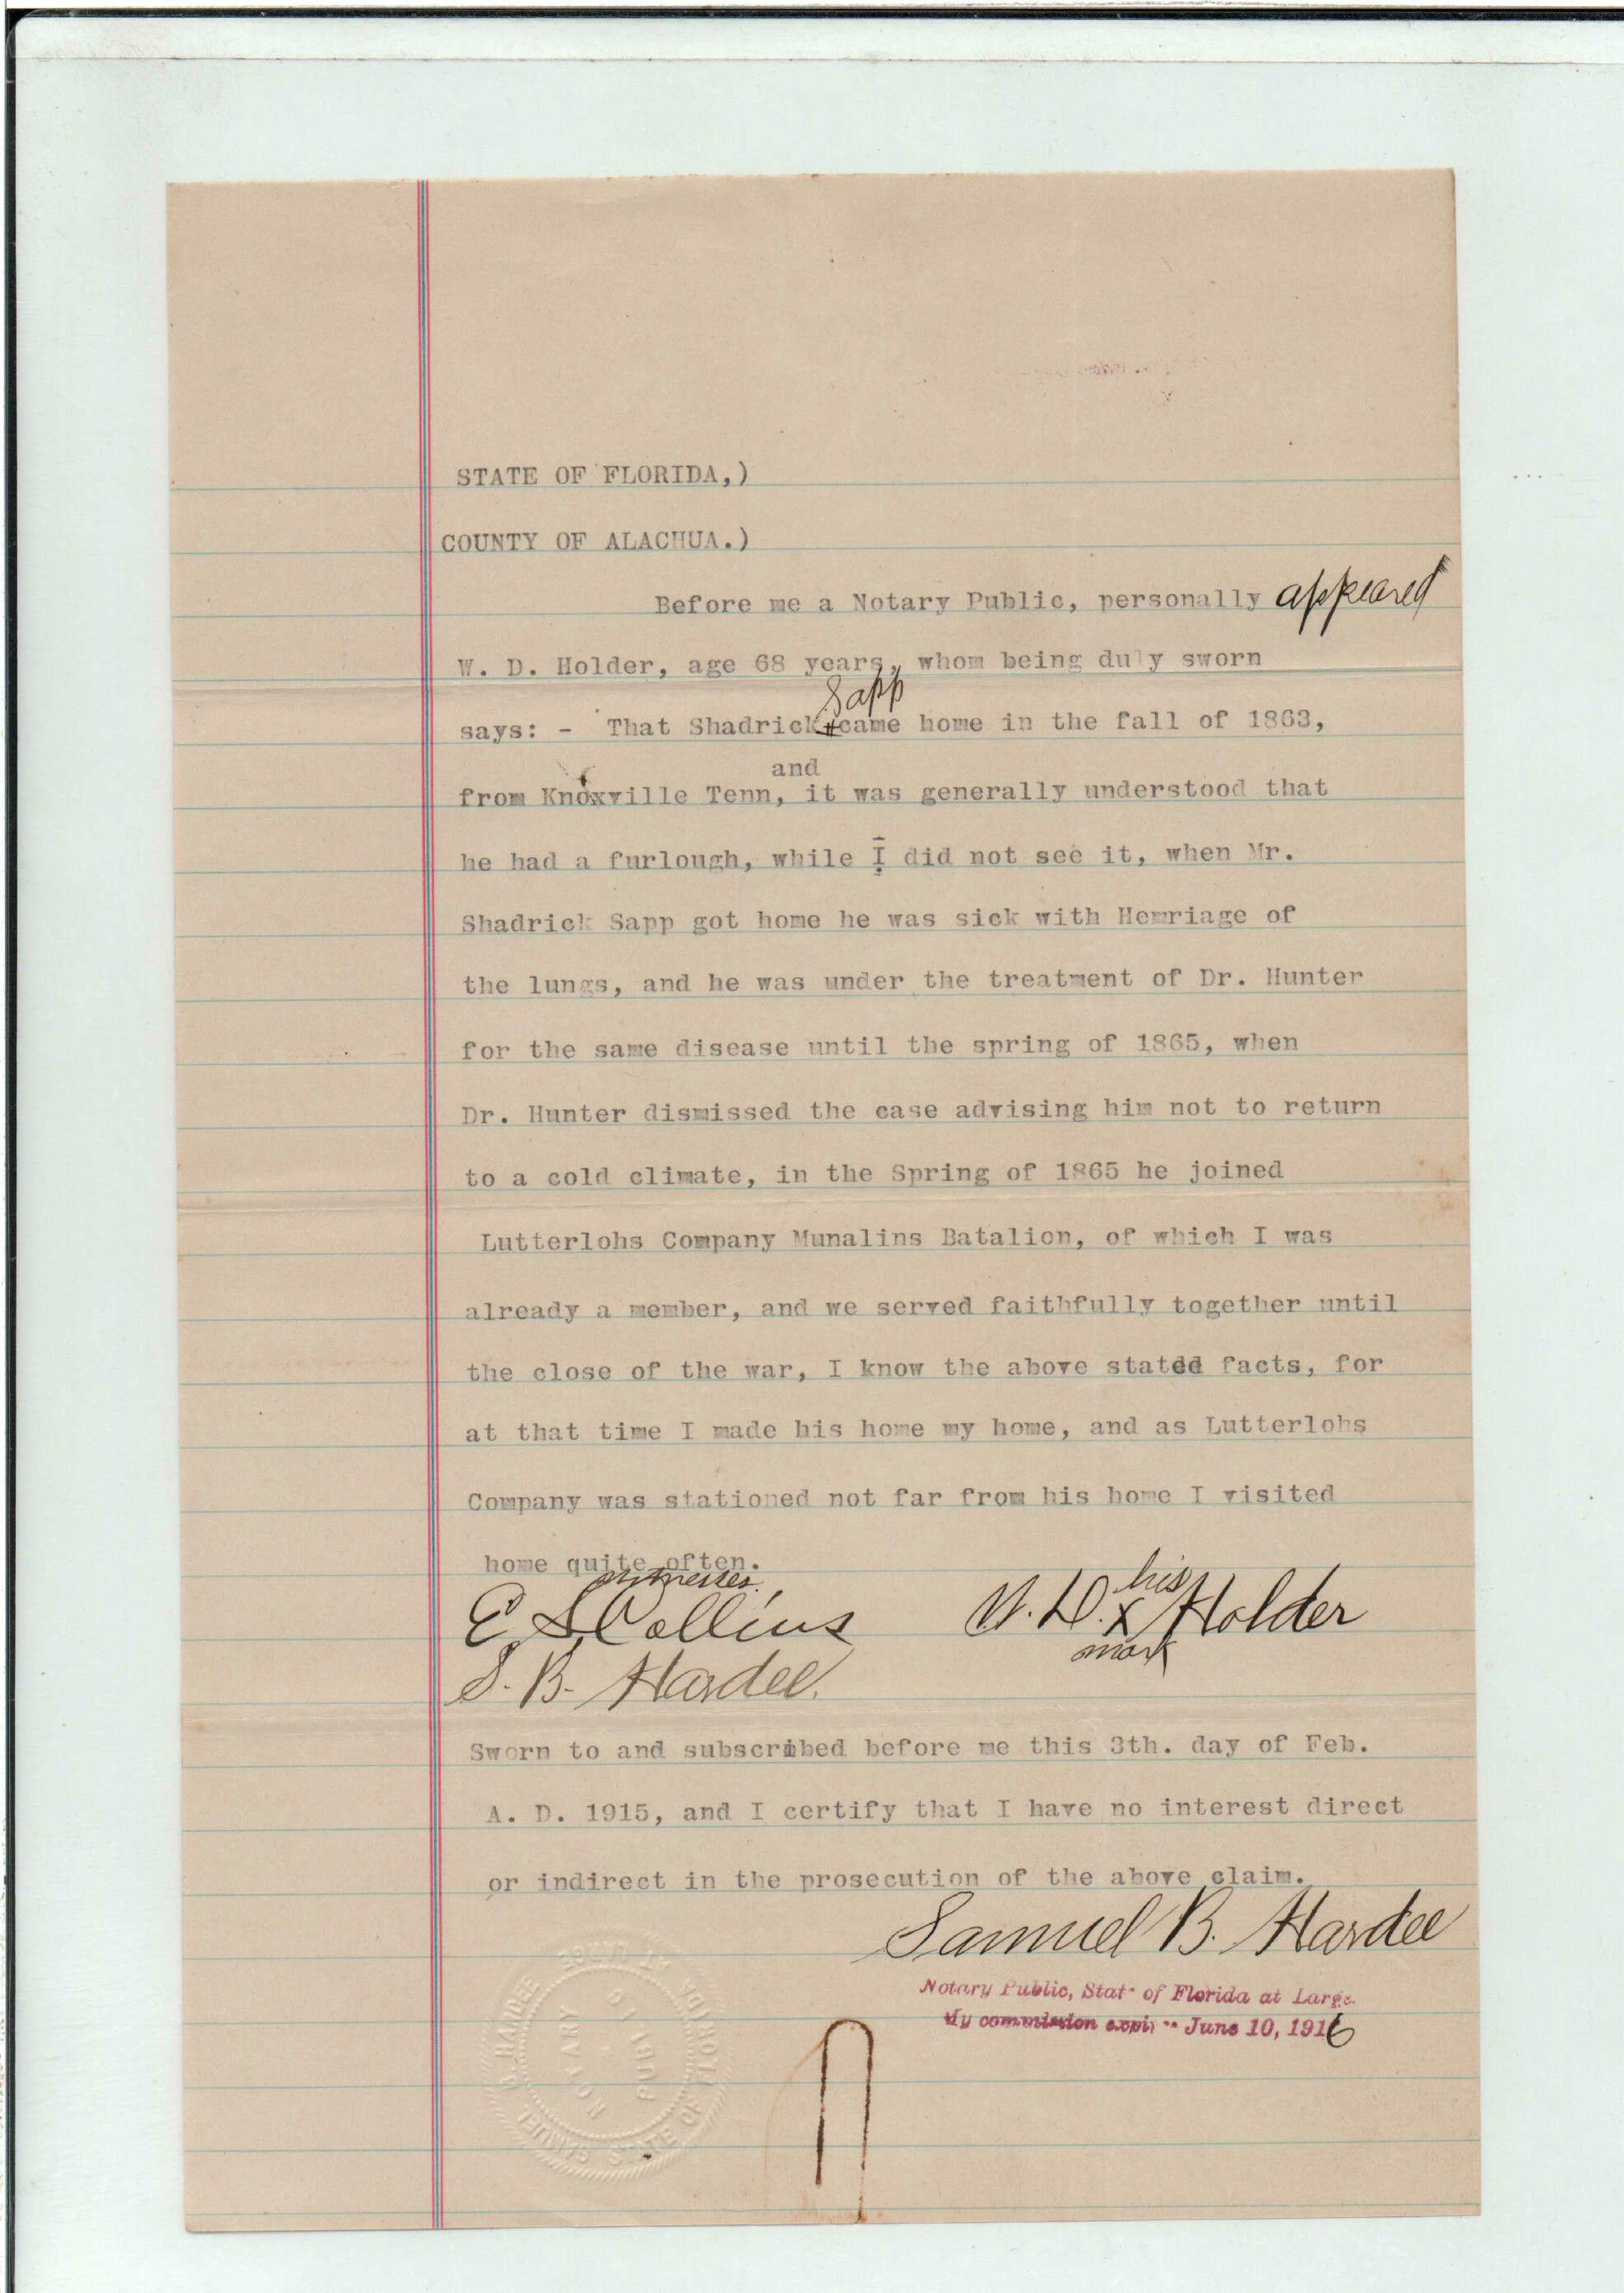 STATE OF FLORIDA,)
COUNTY OF ALACHUA.)
Before me a Notary Public, personally appeared
W. D. Holder, age 68 years, whom being duly sworn
Sapp
says: - That Shadrick came home in the fall of 1863,
and
from Knoxville Tenn, it was generally understood that
he had a furlough, while I did not see it, when Mr.
Shadrick Sapp got home he was sick with Hemriage of
the lungs, and he was under the treatment of Dr. Hunter
for the same disease until the spring of 1865, when
Dr. Hunter dismissed the case advising him not to return
to a cold climate, in the Spring of 1865 he joined
Lutterlohs Company Munalins Batalion, of which I was
already a member, and we served faithfully together until
the close of the war, I know the above stated facts, for
at that time I made his home my home, and as Lutterlohs
Company was stationed not far from his home I visited
home quite often.
witnesses.
his
E S Collins W. D. x Holder
mark
S. B. Hardee.
Sworn to and subscribed before me this 3th. day of Feb.
A. D. 1915, and I certify that I have no interest direct
or indirect in the prosecution of the above claim.
Samuel B. Hardee
Notary Public, State of Florida at Large.
My commission expires June 10, 1916
SAMUEL B. HARDEE
NOTARY PUBLIC
STATE OF FLORIDA AT LARGE